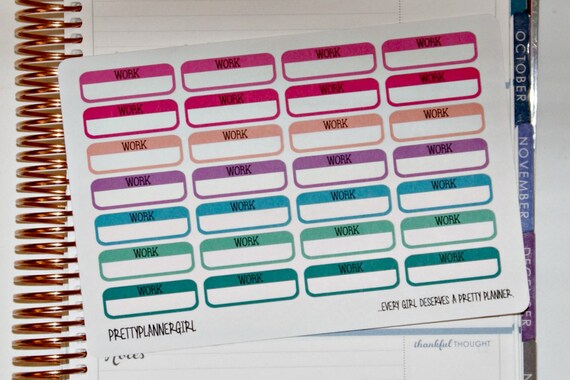 WORK WORK WORK WORK
WORK WORK WORK WORK
WORK WORK WORK WORK
WORK WORK WORK WORK
WORK WORK WORK WORK
WORK WORK WORK WORK
WORK WORK WORK WORK
PRETTYPLANNERGIRL
...EVERY GIRL DESERVES A PRETTY PLANNER.
thankful THOUGHT
Notes
OCTOBER
NOVEMBER
DECEMBER